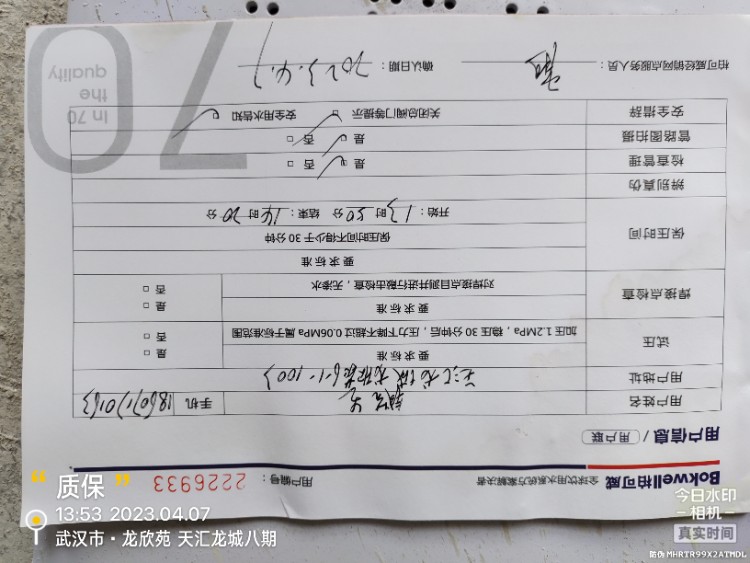 Bokwell柏可威 全球饮用水系统方案解决者 用户编号：2226933
用户信息 / 用户联
用户姓名 手机
用户地址 天汇龙城龙欣苑6-1-1003
试压 要求标准 是 □
加压1.2MPa，稳压30分钟后，压力下降不超过0.06MPa属于标准范围 否 □
焊接点检查 要求标准 是 □
对焊接点目测并进行敲击检查，无渗水 否 □
保压时间 要求标准
保压时间不得少于30分钟
开始：13时50分 结束：14时20分
辨别真伪
检查管理 是 □ 否 □
管路图拍摄 是 □ 否 □
安全措辞 关闭总阀门等提示 □ 安全用水告知 □
柏可威经销网点服务人员： 确认日期：2023.4.7
In 70
the
quality
70
质保
13:53 2023.04.07
武汉市·龙欣苑 天汇龙城八期
今日水印
相机
真实时间
防伪 MHRTR99X2ATMDL